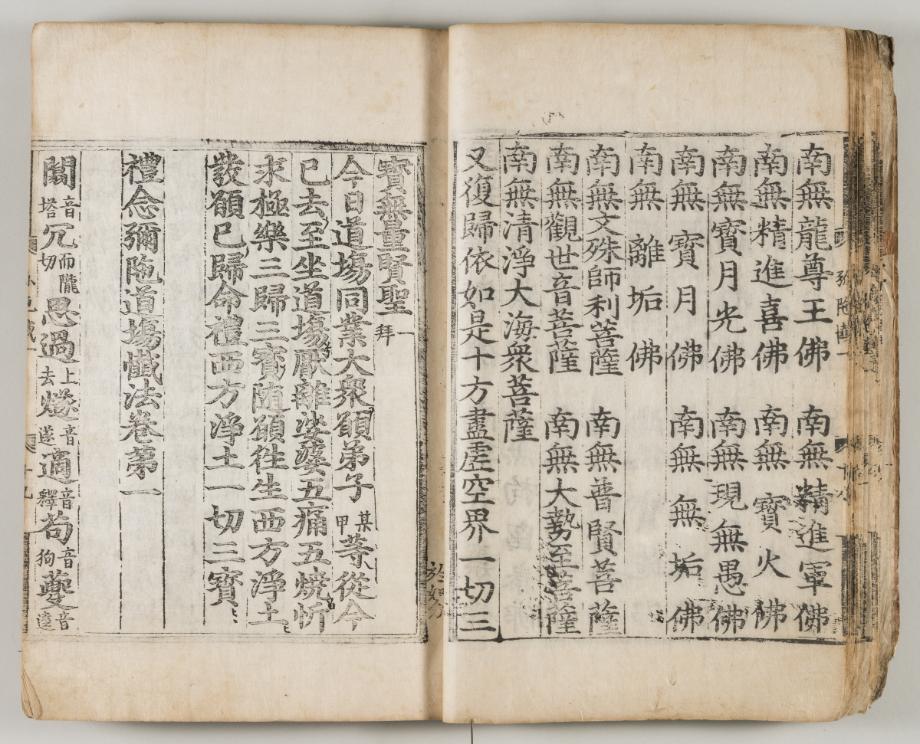 南無龍尊王佛 南無精進軍佛
南無精進喜佛 南無寶火佛
南無寶月光佛 南無現無愚佛
南無寶月佛 南無無垢佛
南無離垢佛
南無文殊師利菩薩 南無普賢菩薩
南無觀世音菩薩 南無大勢至菩薩
南無清淨大海衆菩薩
又復歸依如是十方盡虛空界一切三
寶無量賢聖 一拜
今日道場同業大衆願弟子 某甲 等從今
已去至坐道場厭離娑婆五痛五燒忻
求極樂三歸三寶隨願往生西方淨土
發願已歸命禮西方淨土一切三寶
禮念彌陁道場懺法卷第一
闒 音塔 冗 而隴切 過 上去 燧 音遂 適 音釋 苟 音狗 夔 音逵